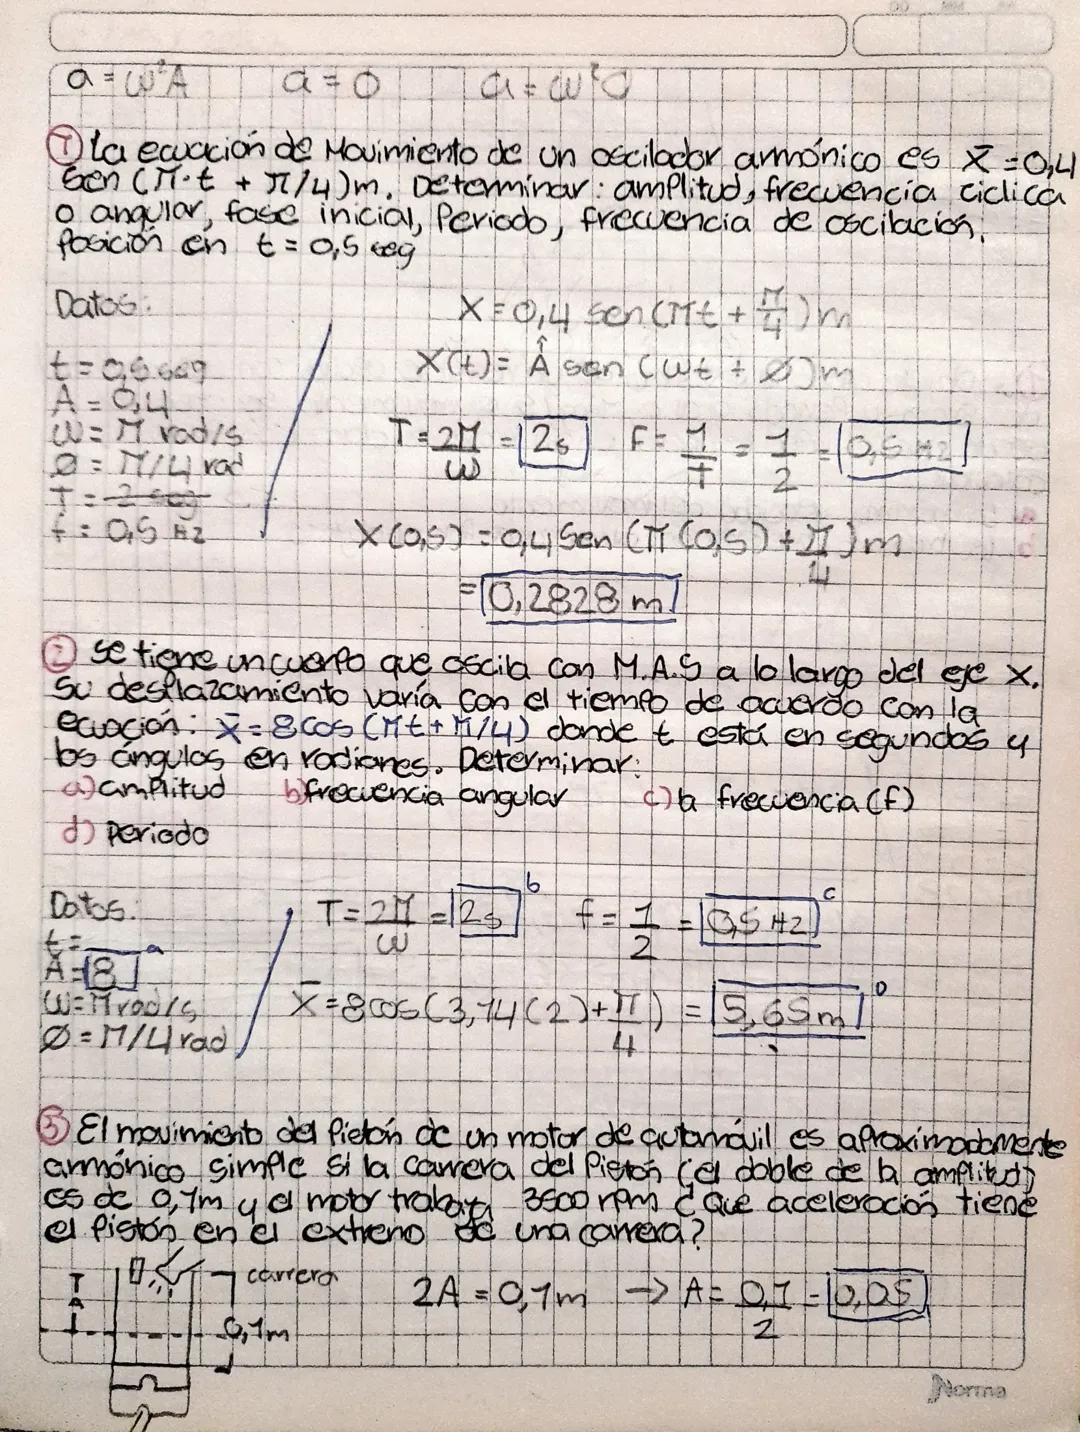 a = ω²A a = 0 a = ω²0
① La ecuación de Movimiento de un oscilador armónico es X̄ = 0,4
Sen (π·t + π/4)m. Determinar: amplitud, frecuencia ciclica
o angular, fase inicial, Periodo, frecuencia de oscilación,
Posición en t = 0,5 seg
Datos:
t = 0,5 seg
A = 0,4
ω = π rad/s
Ø = π/4 rad
T = 2 seg
f = 0,5 Hz
X = 0,4 sen (πt + π/4) m
X(t) = Â sen (ωt + Ø) m
T = 2π/ω = 2s F = 1/T = 1/2 = 0,5 Hz
X(0,5) = 0,4 Sen (π (0,5) + π/4) m
= 0,2828 m
② Se tiene un cuerpo que oscila con M.A.S a lo largo del eje X.
Su desplazamiento varía con el tiempo de acuerdo con la
ecuación: X̄ = 8 cos (πt + π/4) donde t está en segundos y
los ángulos en radianes. Determinar:
a) amplitud b) frecuencia angular c) la frecuencia (f)
d) Periodo
Datos:
t =
A = 8 a
ω = π rad/s
Ø = π/4 rad
T = 2π/ω = 2s b f = 1/2 = 0,5 Hz c
X̄ = 8 cos (3,14 (2) + π/4) = 5,65 m D
③ El movimiento del Pistón de un motor de automóvil es aproximadamente
armónico simple si la carrera del Pistón (el doble de la amplitud)
es de 0,1m y el motor trabaja 3500 rpm ¿Que aceleración tiene
el Pistón en el extremo de una carrera?
carrera
A
0,1m
2A = 0,1m → A = 0,1/2 = 0,05
Norma